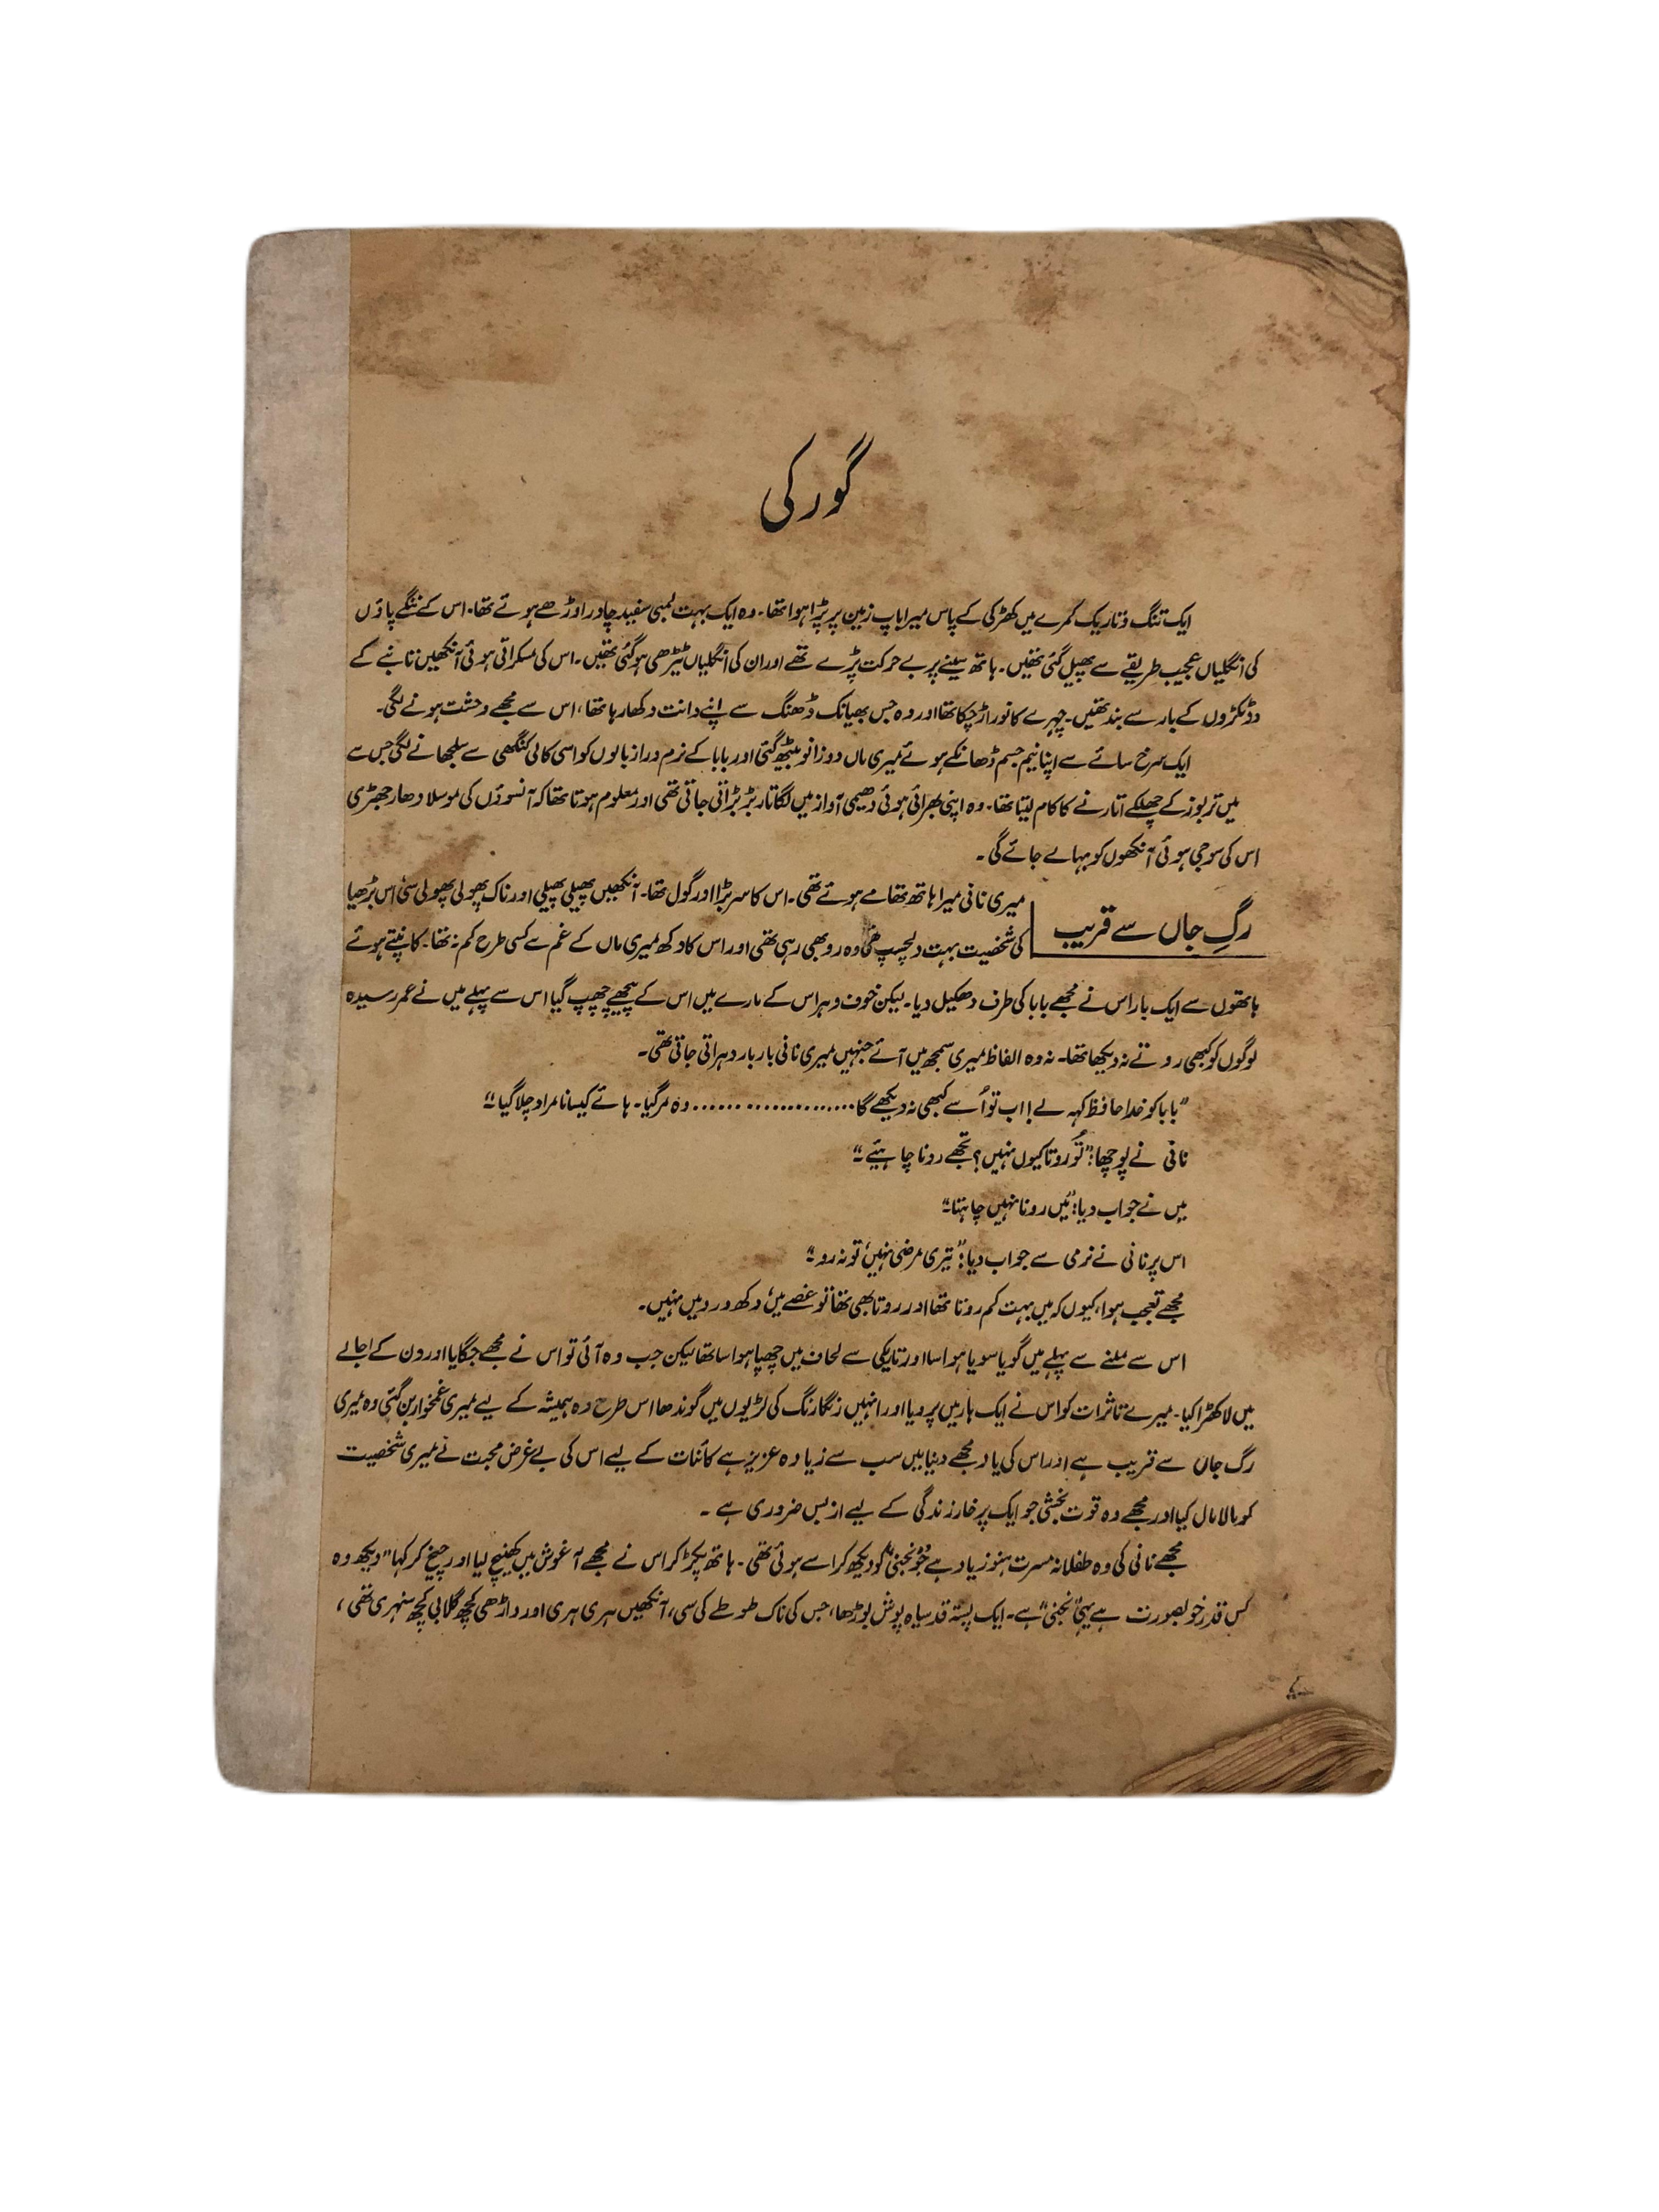 گورکی
ایک تنگ و تاریک کمرے میں کھڑکی کے پاس میرا باپ زمین پر پڑا ہوا تھا۔ وہ ایک بہت لمبی سفید چادر اوڑھے ہوئے تھا۔ اس کے ننگے پاؤں
کی انگلیاں عجیب طریقے سے پھیل گئی تھیں۔ ہاتھ سینے پر بے حرکت پڑے تھے اور ان کی انگلیاں ٹیڑھی ہو گئی تھیں۔ اس کی مسکراتی ہوئی آنکھیں تانبے کے
دو ٹکڑوں کے بار سے بند تھیں۔ چہرے کا نور اڑ چکا تھا اور وہ جس بھیانک ڈھنگ سے اپنے دانت دکھا رہا تھا، اس سے مجھے وحشت ہونے لگی۔
ایک سرخ سائے سے اپنا نیم جسم ڈھانکے ہوئے میری ماں دوزانو بیٹھ گئی اور بابا کے نرم دراز بالوں کو اسی کالی کنگھی سے سلجھانے لگی جس سے
میں تربوز کے چھلکے اتارنے کا کام لیتا تھا۔ وہ اپنی بھرائی ہوئی دھیمی آواز میں لگاتار بڑبڑاتی جاتی تھی اور معلوم ہوتا تھا کہ آنسوؤں کی موسلا دھار جھڑی
اس کی سوجی ہوئی آنکھوں کو بہا لے جائے گی۔
رگِ جاں سے قریب
میری نانی میرا ہاتھ تھامے ہوئے تھی۔ اس کا سر بڑا اور گول تھا۔ آنکھیں پھیلی پھیلی اور ناک پھولی پھولی سی، اس بڑھیا
کی شخصیت بہت دلچسپ تھی وہ رو بھی رہی تھی اور اس کا دکھ میری ماں کے غم سے کسی طرح کم نہ تھا۔ کانپتے ہوئے
ہاتھوں سے ایک بار اس نے مجھے بابا کی طرف دھکیل دیا۔ لیکن خوف و ہراس کے مارے میں اس کے پیچھے چھپ گیا اس سے پہلے میں نے عمر رسیدہ
لوگوں کو کبھی روتے نہ دیکھا تھا۔ نہ وہ الفاظ میری سمجھ میں آئے جنہیں میری نانی بار بار دہراتی جاتی تھی۔
”بابا کو خدا حافظ کہہ لے! اب تو اُسے کبھی نہ دیکھے گا..................... وہ مر گیا۔ ہائے کیسا نامراد چلا گیا“
نانی نے پوچھا: ”تُو روتا کیوں نہیں؟ تجھے رونا چاہئیے۔“
میں نے جواب دیا: ”میں رونا نہیں چاہتا۔“
اس پر نانی نے نرمی سے جواب دیا: ”تیری مرضی نہیں، تو نہ رو۔“
مجھے تعجب ہوا، کیوں کہ میں بہت کم روتا تھا اور روتا بھی تھا تو غصے میں، دکھ درد میں نہیں۔
اس سے ملنے سے پہلے میں گویا سویا ہوا سا اور تاریکی سے لحاف میں چھپا ہوا سا تھا لیکن جب وہ آئی تو اس نے مجھے جگایا اور دن کے اجالے
میں لا کھڑا کیا۔ میرے تاثرات کو اس نے ایک ہار میں پرو دیا اور انہیں رنگارنگ کی لڑیوں میں گوندھا اس طرح وہ ہمیشہ کے لیے میری غمخوار بن گئی وہ میری
رگ جاں سے قریب ہے اور اس کی یاد مجھے دنیا میں سب سے زیادہ عزیز ہے کائنات کے لیے اس کی بے غرض محبت نے میری شخصیت
کو مالا مال کیا اور مجھے وہ قوت بخشی جو ایک پر خار زندگی کے لیے از بس ضروری ہے۔
مجھے نانی کی وہ طفلانہ مسرت ہنوز یاد ہے جو ”نجنی“ کو دیکھ کر اسے ہوئی تھی۔ ہاتھ پکڑ کر اس نے مجھے آغوش میں کھینچ لیا اور چیخ کر کہا ”دیکھ وہ
کس قدر خوبصورت ہے یہی ”نجنی“ ہے۔ ایک پستہ قد سیاہ پوش بوڑھا، جس کی ناک طوطے کی سی، آنکھیں ہری ہری اور داڑھی کچھ گلابی کچھ سنہری تھی،